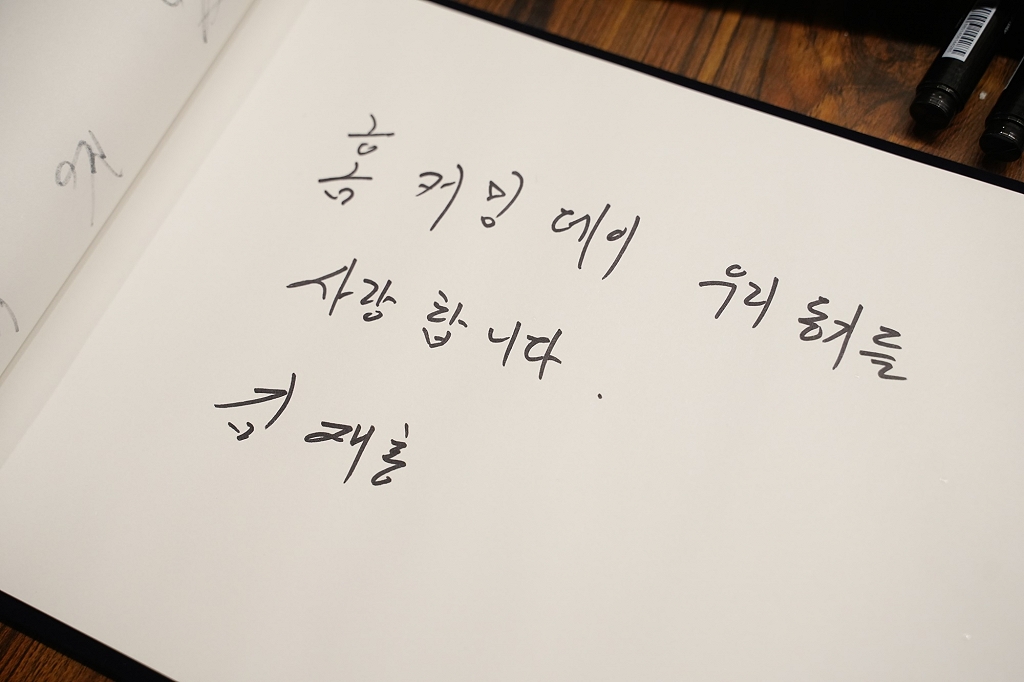 홈 커밍 데이 우리 동기들
사랑 합 니다.
김 재흥